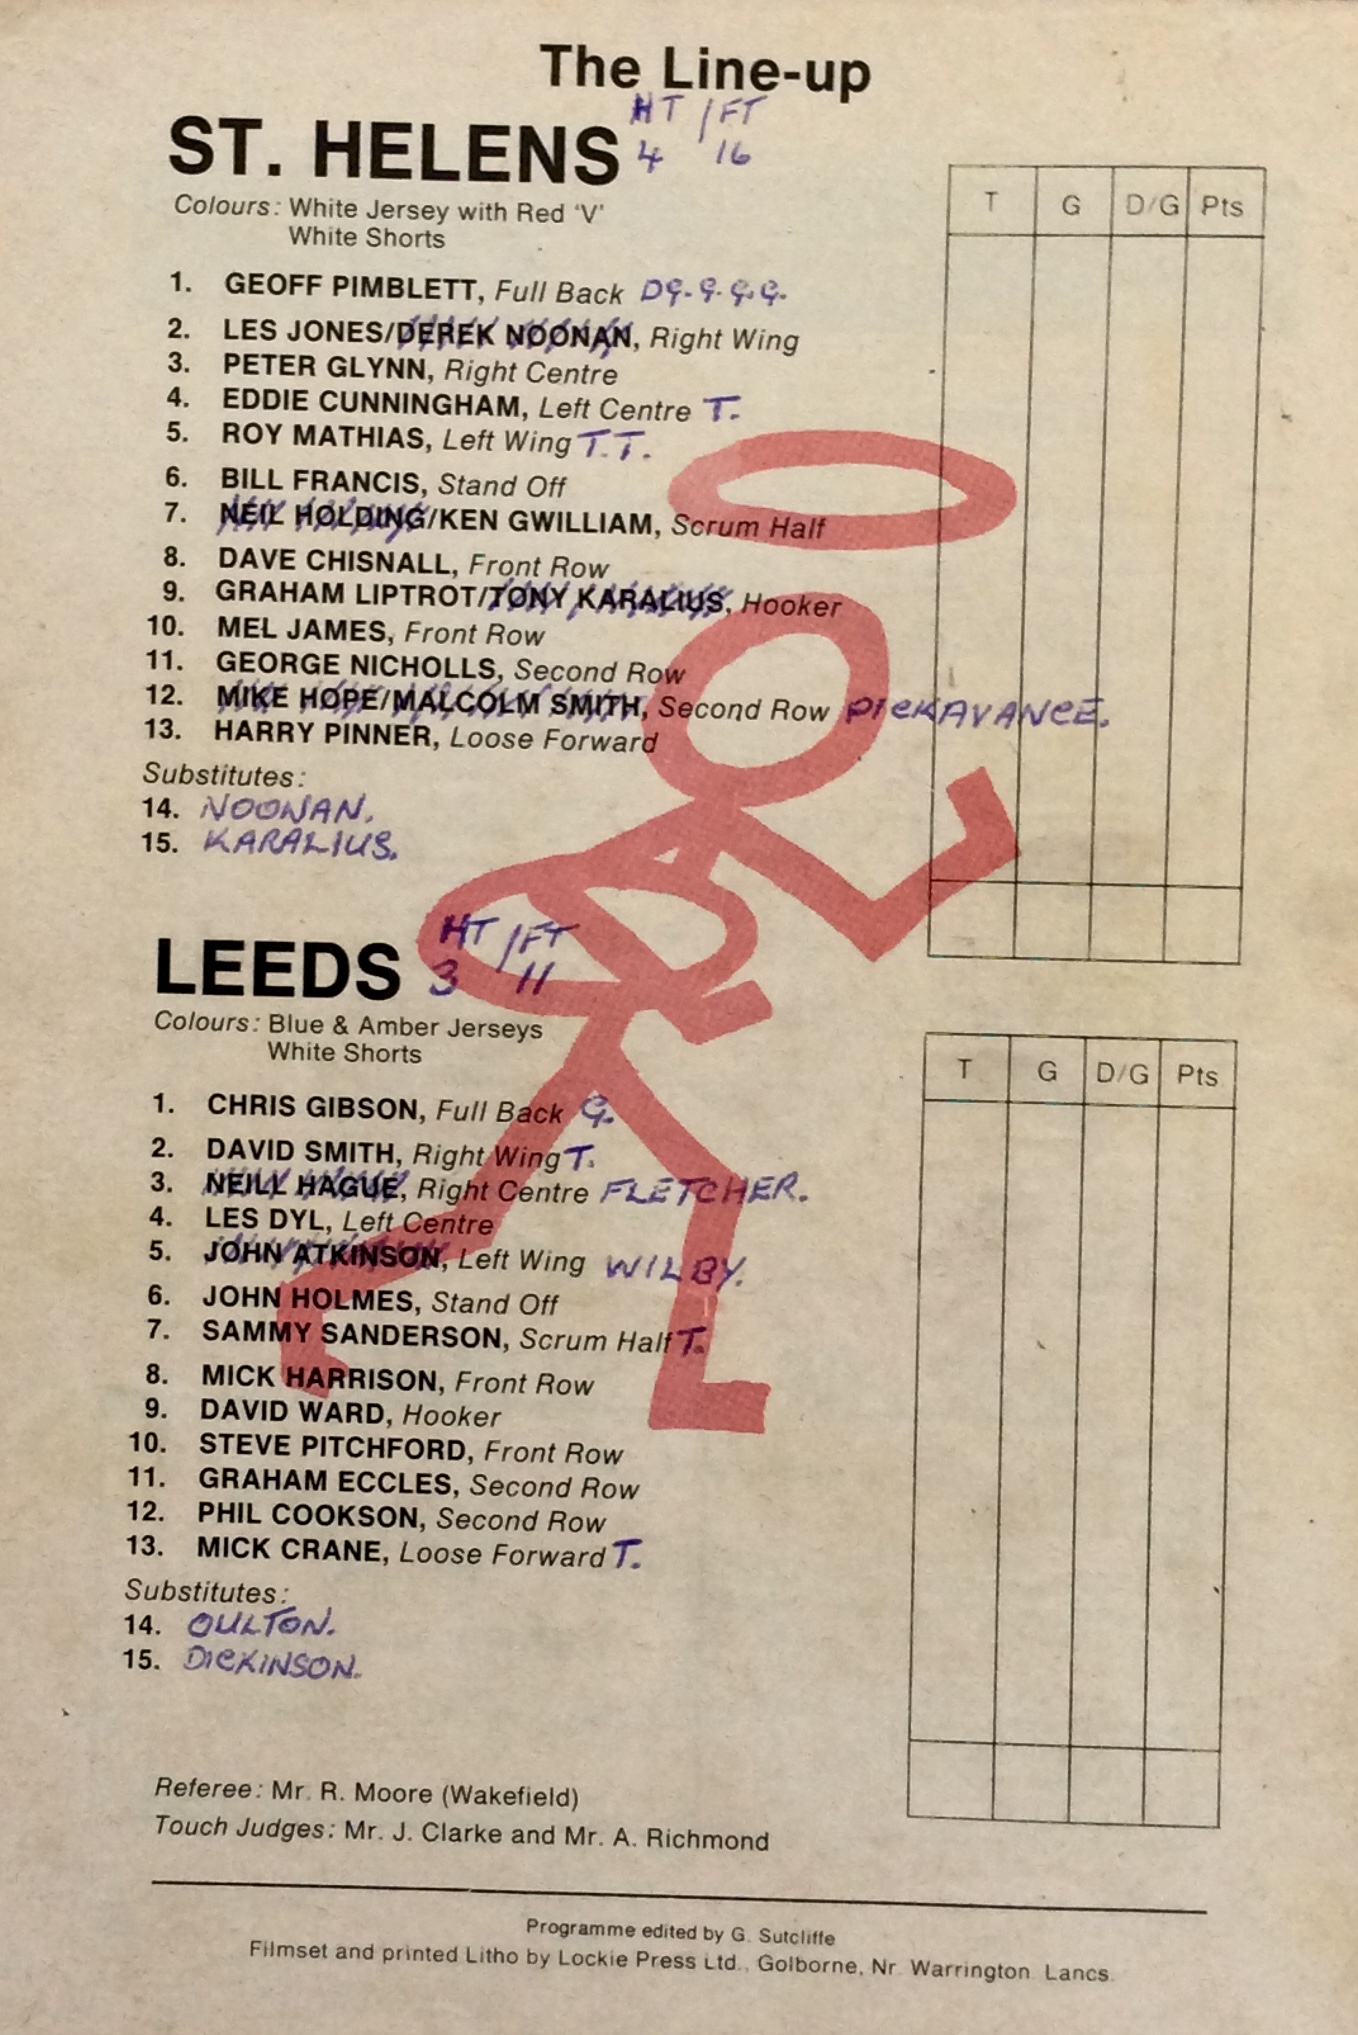 The Line-up
ST. HELENS HT / FT
4 16
Colours: White Jersey with Red 'V'
White Shorts
T G D/G Pts
1. GEOFF PIMBLETT, Full Back DG. G. G. G.
2. LES JONES/DEREK NOONAN, Right Wing
3. PETER GLYNN, Right Centre
4. EDDIE CUNNINGHAM, Left Centre T.
5. ROY MATHIAS, Left Wing T. T.
6. BILL FRANCIS, Stand Off
7. NEIL HOLDING/KEN GWILLIAM, Scrum Half
8. DAVE CHISNALL, Front Row
9. GRAHAM LIPTROT/TONY KARALIUS, Hooker
10. MEL JAMES, Front Row
11. GEORGE NICHOLLS, Second Row
12. MIKE HOPE/MALCOLM SMITH, Second Row PICKAVANCE.
13. HARRY PINNER, Loose Forward
Substitutes:
14. NOONAN.
15. KARALIUS.
LEEDS HT / FT
3 11
Colours: Blue & Amber Jerseys
White Shorts
T G D/G Pts
1. CHRIS GIBSON, Full Back G.
2. DAVID SMITH, Right Wing T.
3. NEILL HAGUE, Right Centre FLETCHER.
4. LES DYL, Left Centre
5. JOHN ATKINSON, Left Wing WILBY.
6. JOHN HOLMES, Stand Off
7. SAMMY SANDERSON, Scrum Half T.
8. MICK HARRISON, Front Row
9. DAVID WARD, Hooker
10. STEVE PITCHFORD, Front Row
11. GRAHAM ECCLES, Second Row
12. PHIL COOKSON, Second Row
13. MICK CRANE, Loose Forward T.
Substitutes:
14. OULTON.
15. DICKINSON.
Referee: Mr. R. Moore (Wakefield)
Touch Judges: Mr. J. Clarke and Mr. A. Richmond
Programme edited by G. Sutcliffe
Filmset and printed Litho by Lockie Press Ltd., Golborne, Nr. Warrington. Lancs.